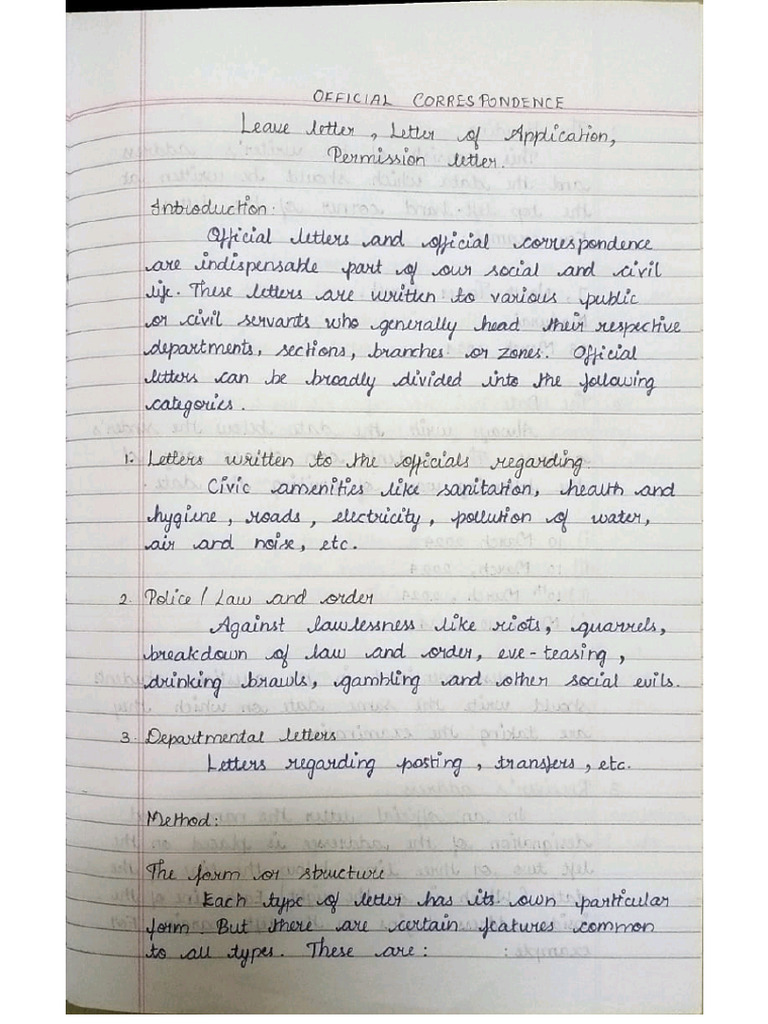 OFFICIAL CORRESPONDENCE
Leave letter, Letter of Application,
Permission letter.
Introduction:
Official letters and official correspondence
are indispensable part of our social and civil
life. These letters are written to various public
or civil servants who generally head their respective
departments, sections, branches or zones. Official
letters can be broadly divided into the following
categories.
1. Letters written to the officials regarding
Civic amenities like sanitation, health and
hygiene, roads, electricity, pollution of water,
air and noise, etc.
2. Police / Law and order
Against lawlessness like riots, quarrels,
breakdown of law and order, eve-teasing,
drinking brawls, gambling and other social evils.
3. Departmental letters
Letters regarding posting, transfers, etc.
Method:
The form or structure
Each type of letter has its own particular
form. But there are certain features common
to all types. These are: